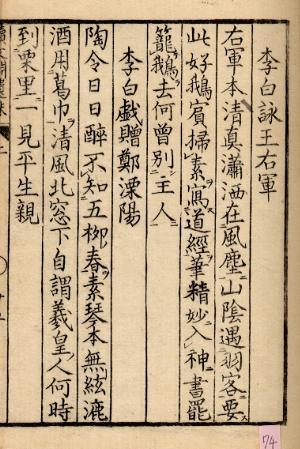 李白詠王右軍
右軍本清真瀟洒在風塵山陰遇羽客要
此好鵝賓掃素寫道經筆精妙入神書罷
籠鵝去何曾別主人
李白戲贈鄭溧陽
陶令日日醉不知五柳春素琴本無絃漉
酒用葛巾清風北窓下自謂羲皇人何時
到栗里一見平生親
74